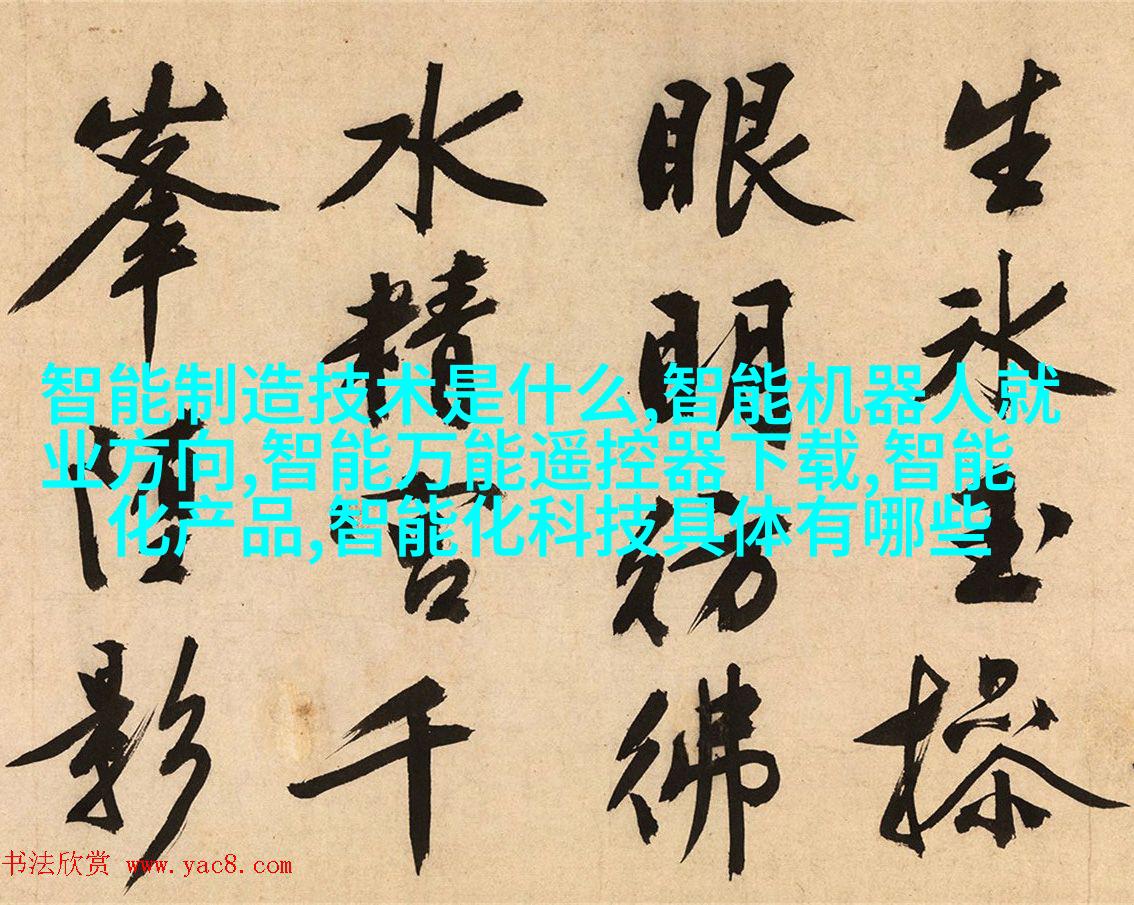 生氷玉操
眼明彷彿
水精宮千
峯 影
智能制造技术是什么,智能机器人就
业方向,智能万能遥控器下载,智能
化产品,智能化科技具体有哪些
书法欣赏 www.yac8.com